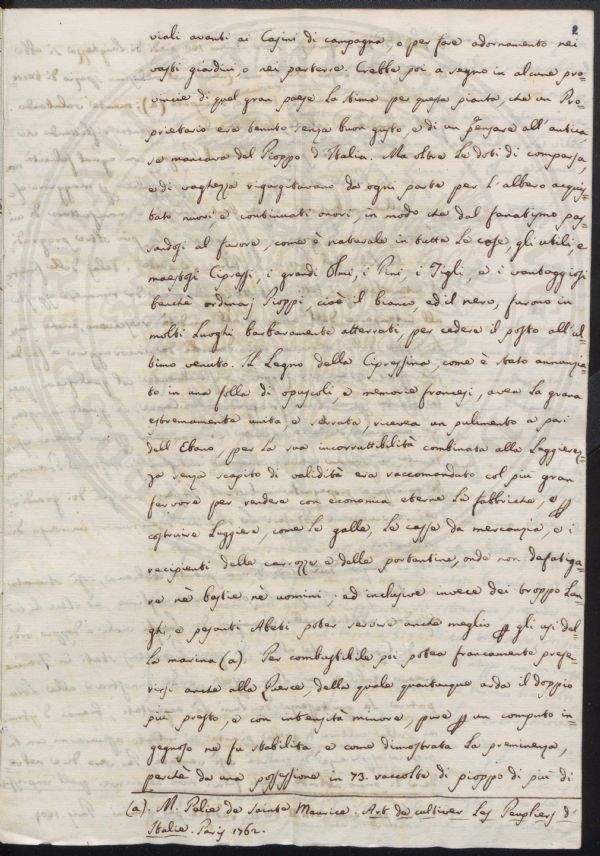 2
viali avanti ai Casini di campagna, o per fare adornamento nei
vasti giardini, o nei parterre. Crebbe poi a segno in alcune pro=
vincie di quel gran paese la stima per questa pianta, che un Pro=
prietario era tenuto senza buon gusto, e di un pensare all'antica,
se mancava del Pioppo d'Italia. Ma oltre le doti di comparsa,
e di vaghezza rigurgitavano da ogni parte per l'albero acqui=
stato nuovi e continuati onori, in modo che dal fanatismo pas=
sandosi al furore, come è naturale in tutte le cose, gli utili, e
maestosi Cipressi, i grandi Olmi, i Pini, i Tigli, e i vantaggiosi
benchè ordinarj Pioppi, cioè il bianco, ed il nero, furono in
molti luoghi barbaramente atterrati, per cedere il posto all'ul=
timo venuto. Il Legno della Cipressina, come è stato annunzia=
to in una folla di opuscoli, e memorie francesi, avea la grana
estremamente unita, e serrata, riceveva un pulimento a pari
dell'Ebano, per la sua incorruttibilità combinata alla leggierez=
za senza scapito di validità era raccomandato col più gran
fervore per rendere con economia eterne le fabbriche, e p
costruire leggiere, come le galle, le casse da mercanzia, e i
recipienti delle carrozze e delle portantine, onde non defatiga=
re nè bestie nè uomini; ad inclusive invece dei troppo lun=
ghi, e pesanti Abeti poter servire anche meglio p gli usi del=
la marina (a). Per combustibile poi potea francamente prefe=
rirsi anche alla Querce, della quale quantunque arda il doppio
più presto, e con intensità minore, pure p un computo in=
gegnoso ne fu stabilita, e come dimostrata la preminenza,
perchè da una possessione in 73. raccolte di pioppo di più di
(a). M. Pelée de Sainte Maurice. Art de cultiver les Peupliers d'
Italie. Paris 1762.